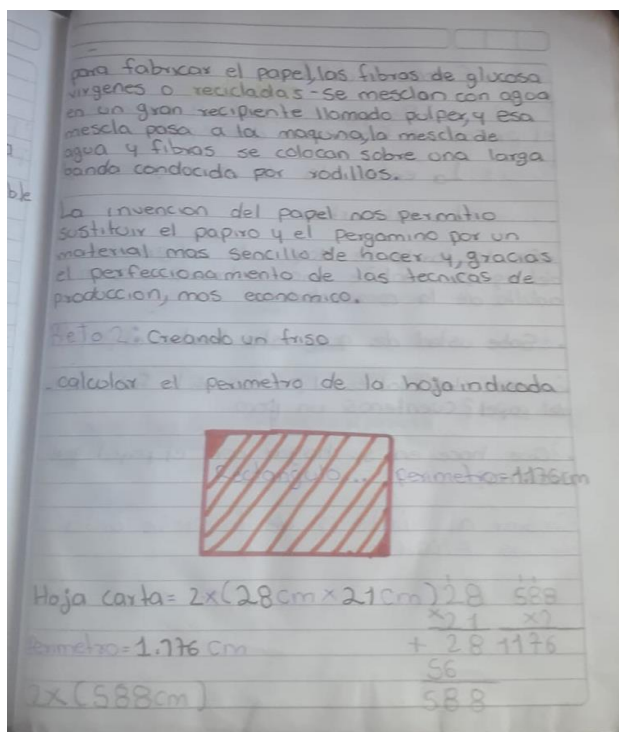 para fabricar el papel, las fibras de glucosa
virgenes o recicladas - se mesclan con agua
en un gran recipiente llamado pulper, y esa
mescla pasa a la maquina, la mescla de
agua y fibras se colocan sobre una larga
banda condocida por rodillos.
ble
La invencion del papel nos permitio
sustituir el papiro y el pergamino por un
material mas sencillo de hacer y, gracias
el perfeccionamiento de las tecnicas de
produccion, mas economico.
Reto 2: Creando un friso
.calcular el perimetro de la hoja indicada
Rectangulo... Perimetro=1176cm
Hoja carta= 2x(28cm x 21cm) 28 588
x21 x2
Perimetro=1.776 cm + 28 1176
56
2x(588cm) 588